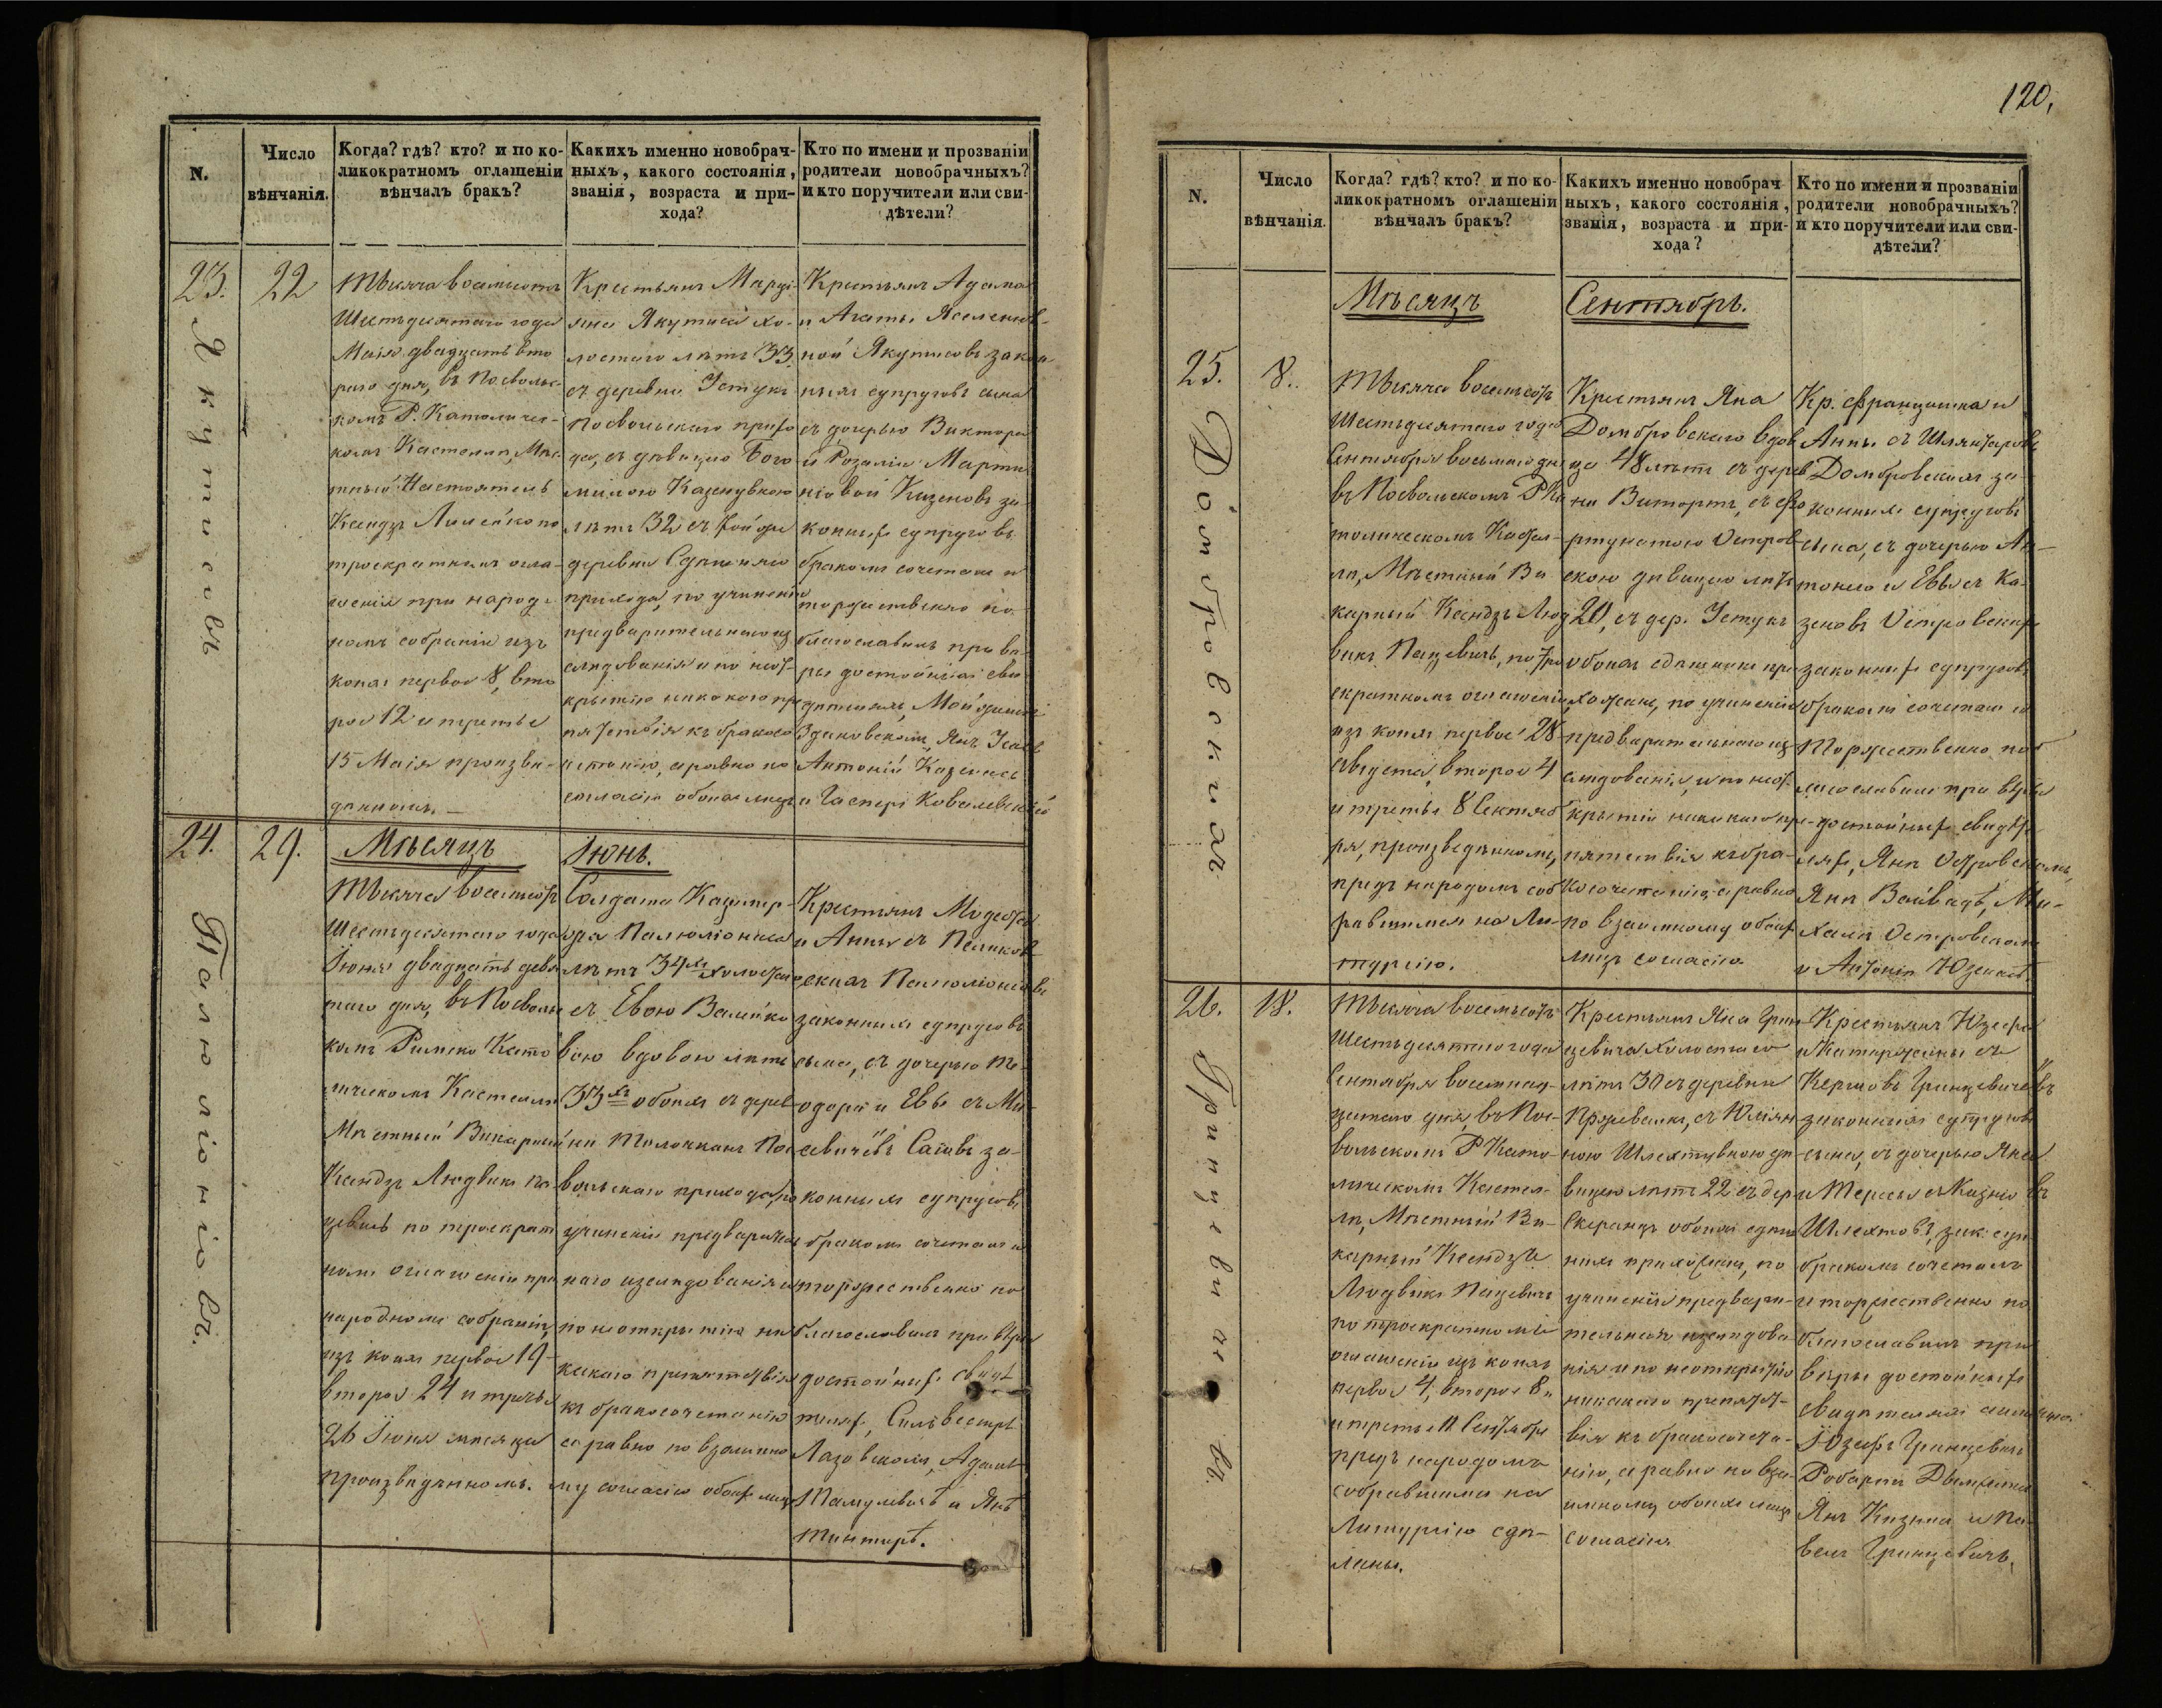 N.
Число
вѣнчанія.
Когда? гдѣ? кто? и по ко-
ликократномъ оглашеніи
вѣнчалъ бракъ?
Какихъ именно новобрач-
ныхъ, какого состоянія,
званія, возраста и при-
хода?
Кто по имени и прозванію
родители новобрачныхъ?
и кто поручители или сви-
дѣтели?
23.
22
Якутисовъ
Тысяча восемьсотъ
Шестьдесятаго года
Маія двадцать вто
раго дня, въ Посвольс-
комъ Р. Католичес-
комъ Костелѣ, Мѣс
тный Настоятель
Ксендзъ Лилейко по
троекратномъ огла-
шеніи при народ-
номъ собраніи изъ
коихъ первое 8, вто
рое 12 и третье
15 Маія произве-
денномъ.
Крестьянъ Марці-
яна Якутиса хо-
лостаго лѣтъ 33
съ деревни Устукъ
Посвольскаго прихо
да, съ дѣвицею Бого
милою Казенувною
лѣтъ 32 съ той же
деревни Сдѣшняго
прихода, по учиненіи
предварительнаго из
слѣдованія и по неот-
крытію никакого пре
пятствія къ бракосо
четанію, а равно по
согласію обоихъ лицъ
Крестьянъ Адама
и Агаты
Якутисовъ закон
ныхъ супруговъ сына
съ дочерью Виктора
и Розаліи Марти
за-
конныхъ супруговъ
бракомъ сочеталъ и
торжественно по-
благославилъ при вѣ-
ры достойныхъ сви
дѣтеляхъ,
Здановскомъ, Янѣ
Антоніи Казенасѣ
и Гаспері Ковалевской
24.
29.
Палюліонісовъ.
Мѣсяцъ
Іюнь.
Тысяча восемьсотъ
Шестьдесятаго года
Іюня двадцать девя
таго дня, въ Посволь
комъ Римско Като
лическомъ Костелѣ
Мѣстный Викарный
Ксендзъ Людвикъ Па
цевичъ по троекрат
номъ оглашеніи при
народномъ собраніи,
изъ коихъ первое 19
второе 24 и третье
26 Іюня мѣсяца
произведенномъ.
Солдата Казимі-
ра Палюліониса
лѣтъ 34хъ холостаго,
съ Евою Валейко
вою вдовою лѣтъ
33хъ обоихъ съ дерев-
ни Толочканъ Пос
вольскаго прихода, по
учиненіи предваритель
наго изслѣдованія и
по неоткрытію ни
каскаго препятствія
къ бракосочетанію
а равно по взаимно
му согласію обоихъ лицъ
Крестьянъ
и Анны съ
Палюліонисовъ
законныхъ супруговъ
сына, съ дочерью Те-
одора и Евы съ
за-
конныхъ супруговъ
бракомъ сочеталъ и
торжественно по
благославилъ при вѣры
достойныхъ свидѣ
теляхъ, Сильвестрѣ
Лазовскомъ, Адамѣ
и Янѣ
120,
N.
Число
вѣнчанія.
Когда? гдѣ? кто? и по ко-
ликократномъ оглашеніи
вѣнчалъ бракъ?
Какихъ именно новобрач
ныхъ, какого состоянія,
званія, возраста и при-
хода?
Кто по имени и прозваніи
родители новобрачныхъ?
и кто поручители или сви-
дѣтели?
Мѣсяцъ
Сентябрь.
25.
8.
Домбровскихъ
Тысяча восемьсотъ
Шестьдесятаго года
Сентября восьмаго дня
въ Посвольскомъ Р Ка
толическомъ Косте-
лѣ, Мѣстный Ви
карный Ксендзъ Люд
викъ Пацевичъ, по трое
кратномъ оглашеніи,
изъ коихъ первое 28
Августа, второе 4
и третье 8 Сентяб
ря, произведенномъ,
предъ народомъ соб
равшимся на Ли-
тургію.
Крестьянъ Яна
Домбровскаго вдов
ца 48 лѣтъ съ дерев
ни Витортъ, съ Фо
ртунатою Остров-
скою дѣвицею лѣтъ
20, съ дер. Устукъ
обоихъ сдѣшнихъ при
хожанъ, по учиненіи
предварительнаго из
слѣдованія, и по неот-
крытіи никакого пре-
пятствія къ бра-
косочетанію, а равно
по взаимному обоихъ
лицъ согласію
Кр. Францишка и
Анны съ
Домбровскихъ за-
конныхъ супруговъ
сына, съ дочерью Ан-
тонею и Евы съ Ка-
зеновъ Островскихъ
законныхъ супруговъ
бракомъ сочеталъ и
Торжественно поб
лагославилъ при вѣры
достойныхъ свидѣте
ляхъ, Янѣ Островскомъ,
Янѣ Вайвадѣ, Ми-
халѣ Островскомъ
и Антоніи Юзенасѣ.
26.
18.
Гринцевичевъ.
Тысяча восемьсотъ
Шестьдесятаго года
Сентября восемнад-
цатаго дня, въ Пос-
вольскомъ Р Като-
лическомъ Косте-
лѣ, Мѣстный Ви-
карный Ксендзъ
Людвикъ Пацевичъ
по троекратномъ
оглашеніи изъ коихъ
первое 4, второе 8
и третье 11 Сентября
предъ народомъ
собравшимся на
Литургію сдѣ-
ланы.
Крестьянъ Яна Грин-
цевича холостаго
лѣтъ 30 съ деревни
съ Юліян
ною Шлехтувною дѣ-
вицею лѣтъ 22 съ дер
обоихъ сдѣш
нихъ прихожанъ, по
учиненіи предвари-
тельнаго изслѣдова
нія и по неоткрытію
никакого препятст-
вія къ бракосочета-
нію, а равно по вза-
имному обоихъ лицъ
согласію
Крестьянъ Юзефа
и Катаржины съ
Гринцевичевъ
законныхъ супруговъ
сына, съ дочерью Яна
и Тересы
Шлехтовъ, зак. суп
бракомъ сочеталъ
и торжественно по
благославилъ при
вѣры достойныхъ
свидѣтеляхъ
Юзефѣ Гринцевичъ
Янъ Кизина и Па
велъ Гринцевичъ.